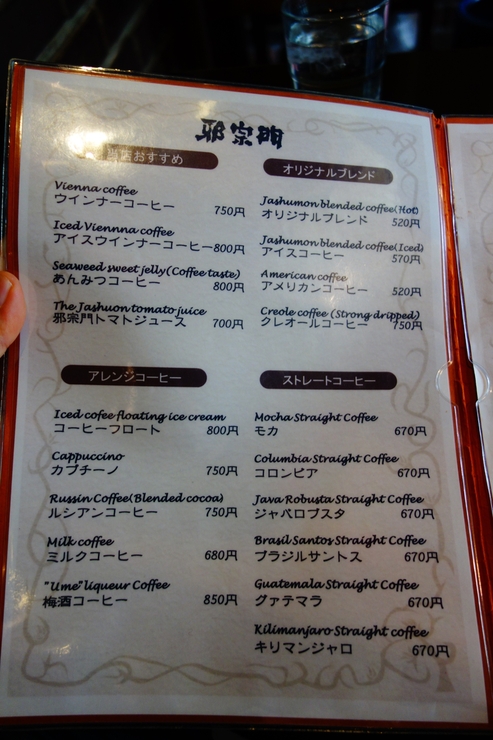 邪宗門
当店おすすめ
Vienna coffee
ウインナーコーヒー 750円
Iced Viennna coffee
アイスウインナーコーヒー 800円
Seaweed sweet jelly(Coffee taste)
あんみつコーヒー 800円
The Jashuon tomato juice
邪宗門トマトジュース 700円
オリジナルブレンド
Jashumon blended coffee(Hot)
オリジナルブレンド 520円
Jashumon blended coffee(Iced)
アイスコーヒー 570円
American coffee
アメリカンコーヒー 520円
Creole coffee (Strong dripped)
クレオールコーヒー 750円
アレンジコーヒー
Iced cofee floating ice cream
コーヒーフロート 800円
Cappuccino
カプチーノ 750円
Russin Coffee(Blended cocoa)
ルシアンコーヒー 750円
Milk coffee
ミルクコーヒー 680円
"Ume" liqueur Coffee
梅酒コーヒー 850円
ストレートコーヒー
Mocha Straight Coffee
モカ 670円
Columbia Straight Coffee
コロンビア 670円
Java Robusta Straight Coffee
ジャバロブスタ 670円
Brasil Santos Straight Coffee
ブラジルサントス 670円
Guatemala Straight Coffee
グァテマラ 670円
Kilimanjaro Straight coffee
キリマンジャロ 670円